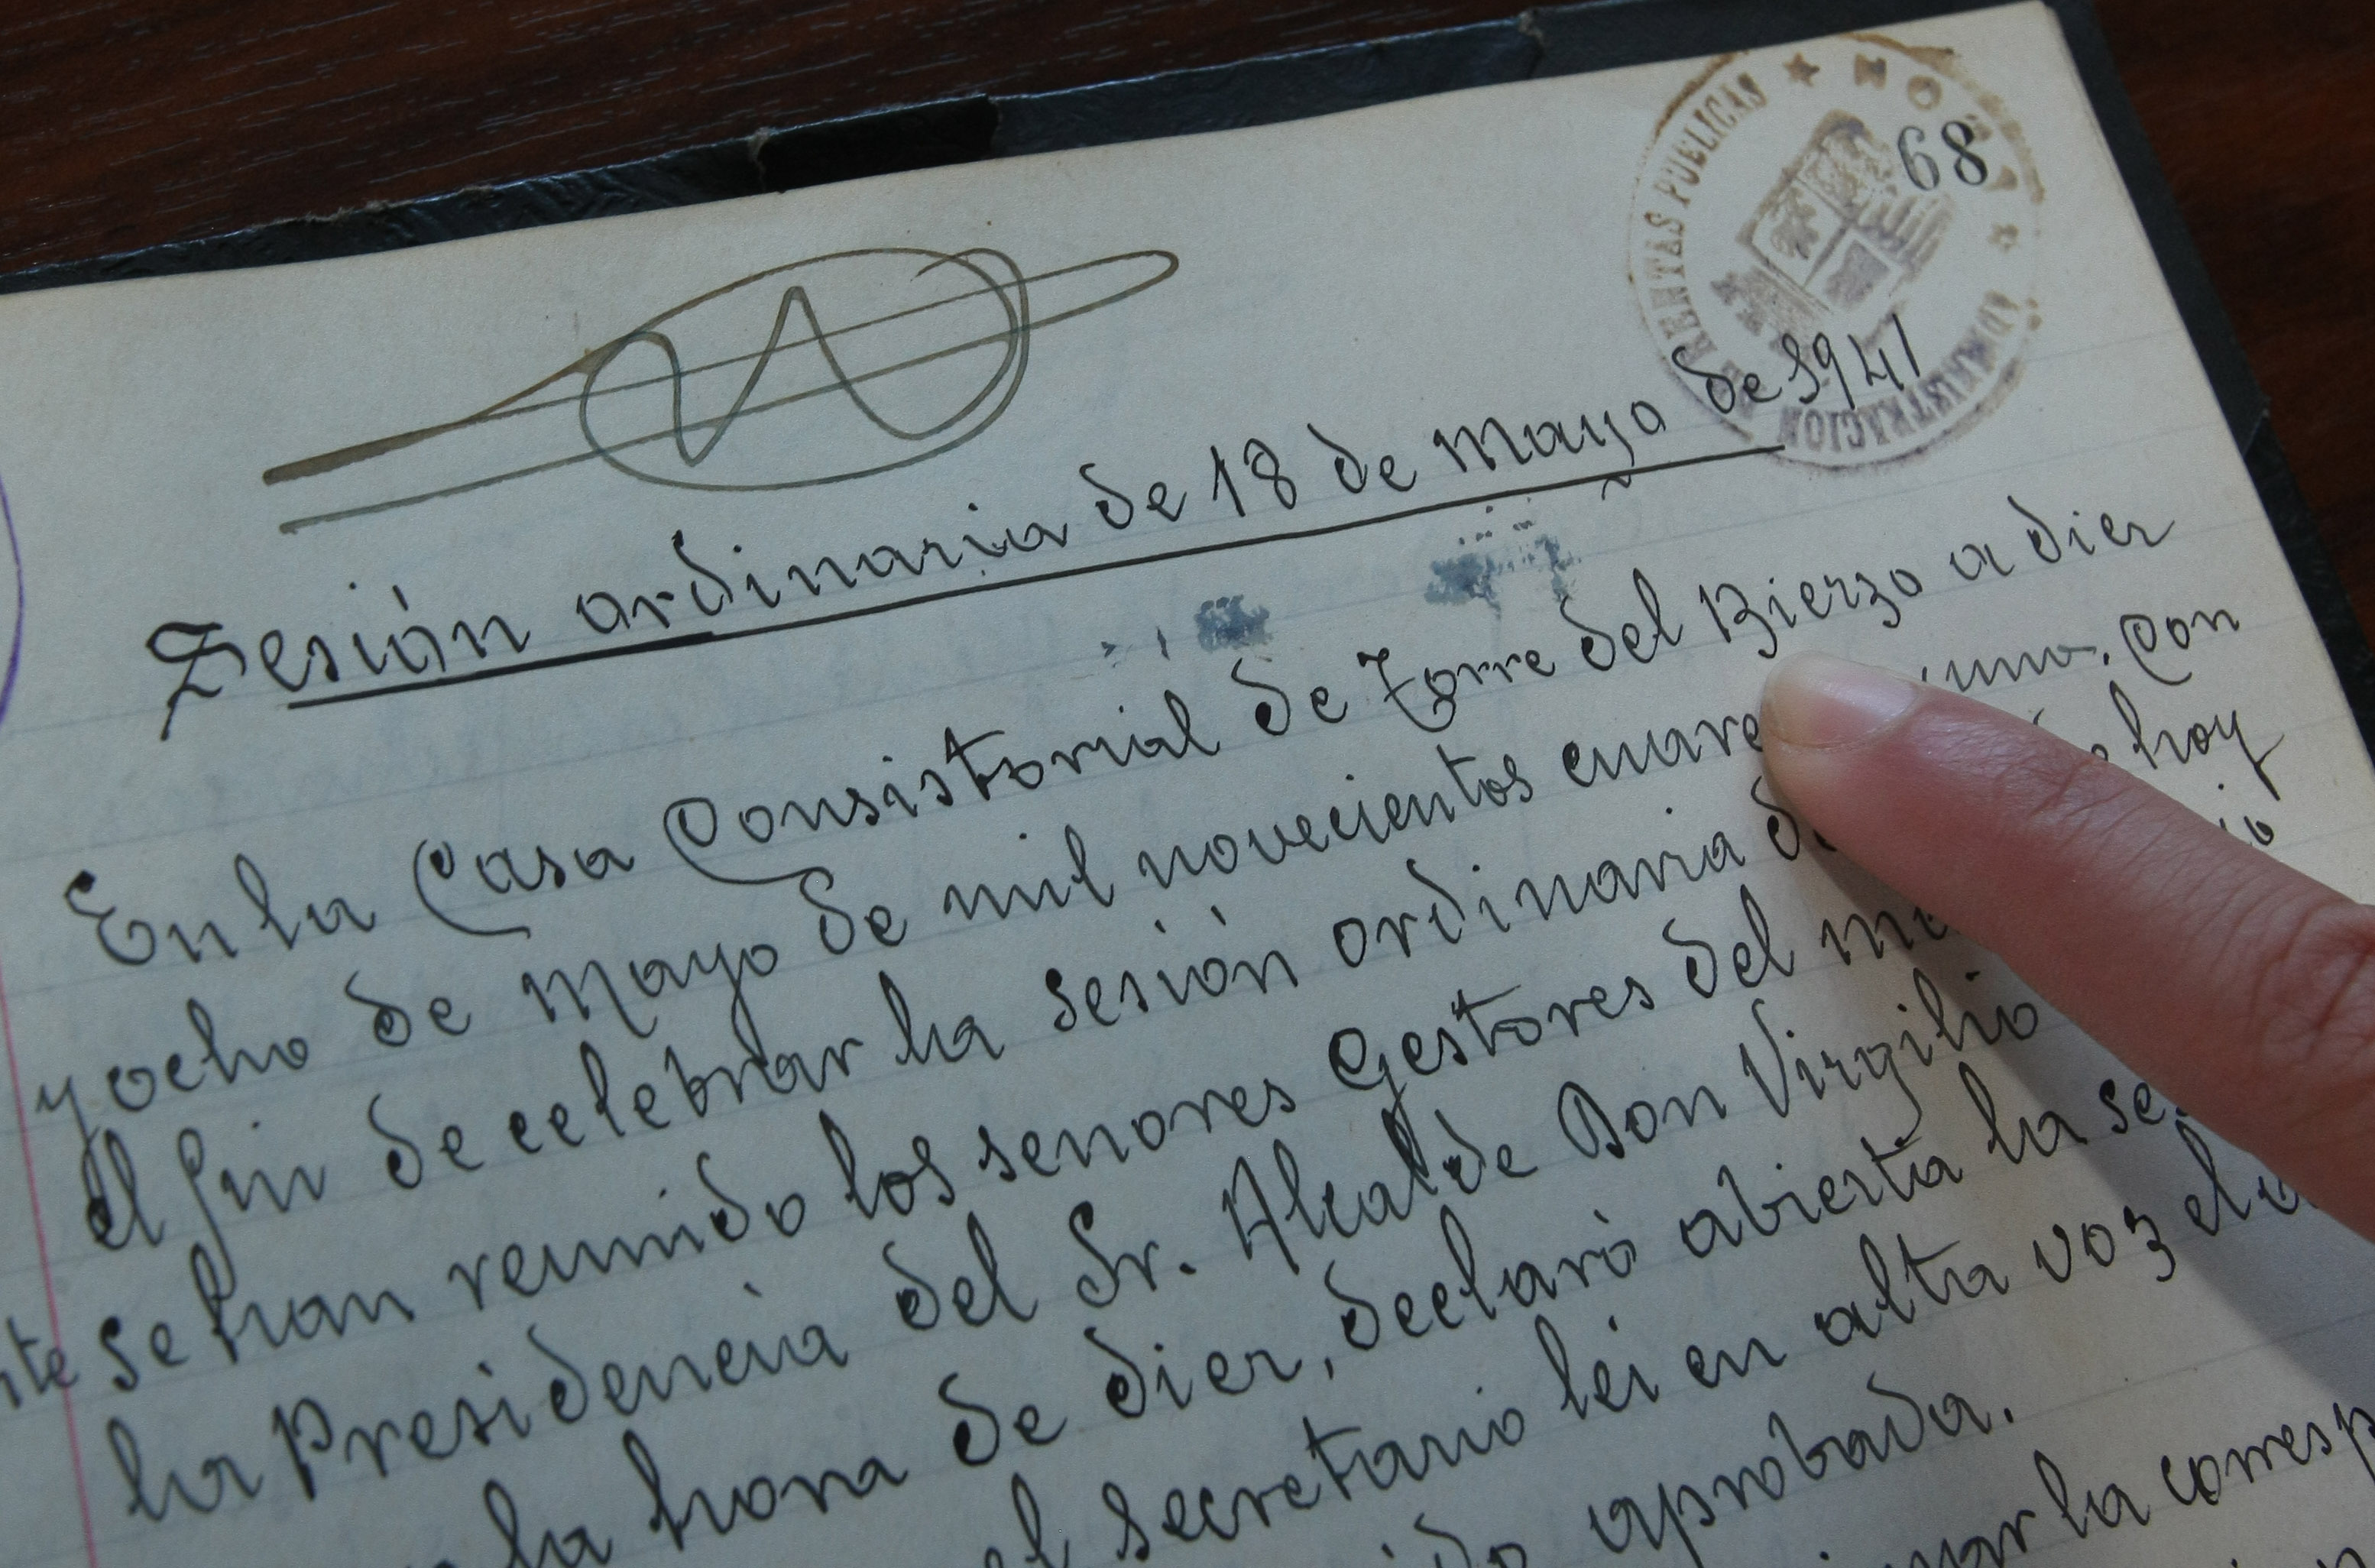 68
RENTAS PUBLICAS
ADMINISTRACION
Sesión ordinaria de 18 de Mayo de 1941
En la Casa Consistorial de Torre del Bierzo a diez
y ocho de mayo de mil novecientos cuare uno, con
el fin de celebrar la sesión ordinaria de hoy
se han reunido los senores Gestores del
la Presidencia del Sr. Alcalde Don Virgilio
la hora de diez, declaró abierta la
el secretario leí en alta voz el
aprobada.
la